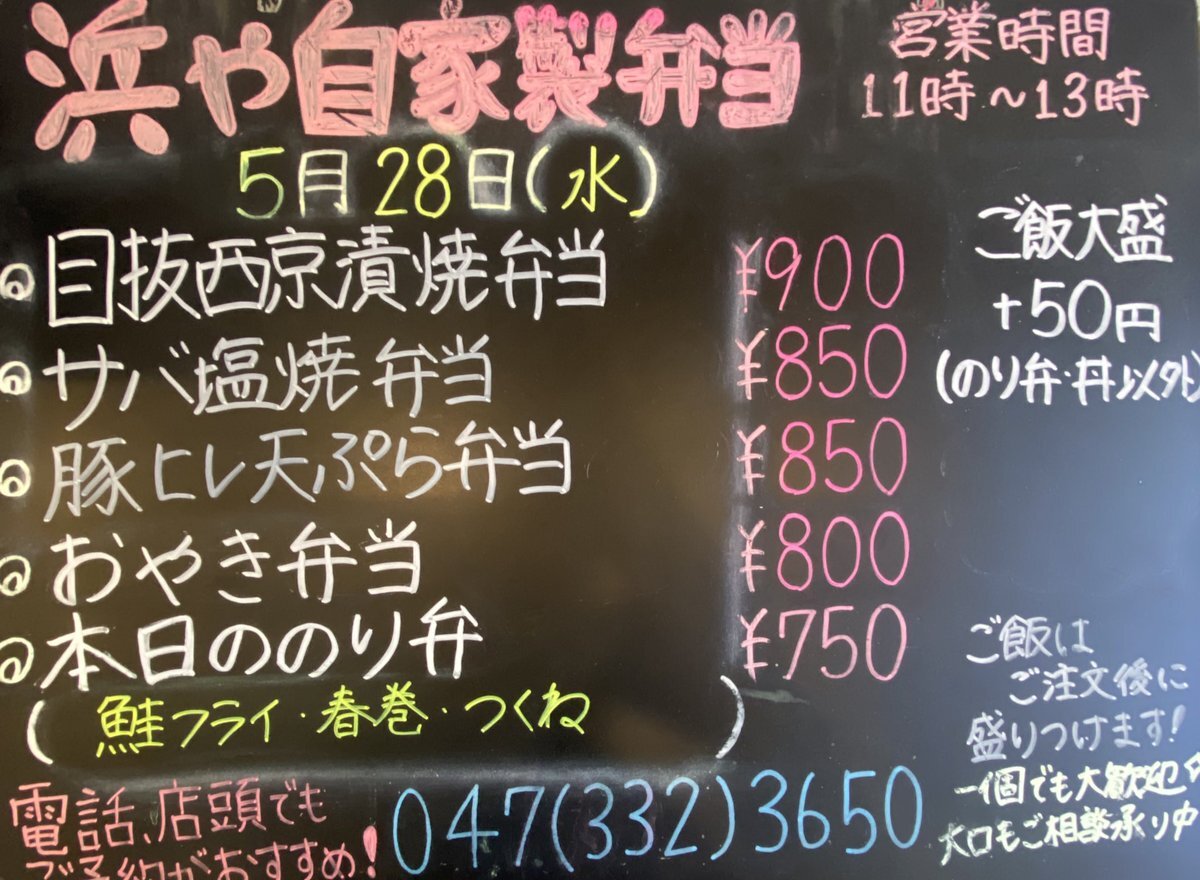 浜や自家製弁当
営業時間
11時～13時
5月28日(水)
目抜西京漬焼弁当 ¥900
サバ塩焼弁当 ¥850
豚ヒレ天ぷら弁当 ¥850
おやき弁当 ¥800
本日ののり弁 ¥750
(鮭フライ・春巻・つくね)
ご飯大盛
+50円
(のり弁・丼以外)
ご飯は
ご注文後に
盛りつけます!
一個でも大歓迎
大口もご相談承り中
電話、店頭でも
ご予約がおすすめ!
047(332)3650